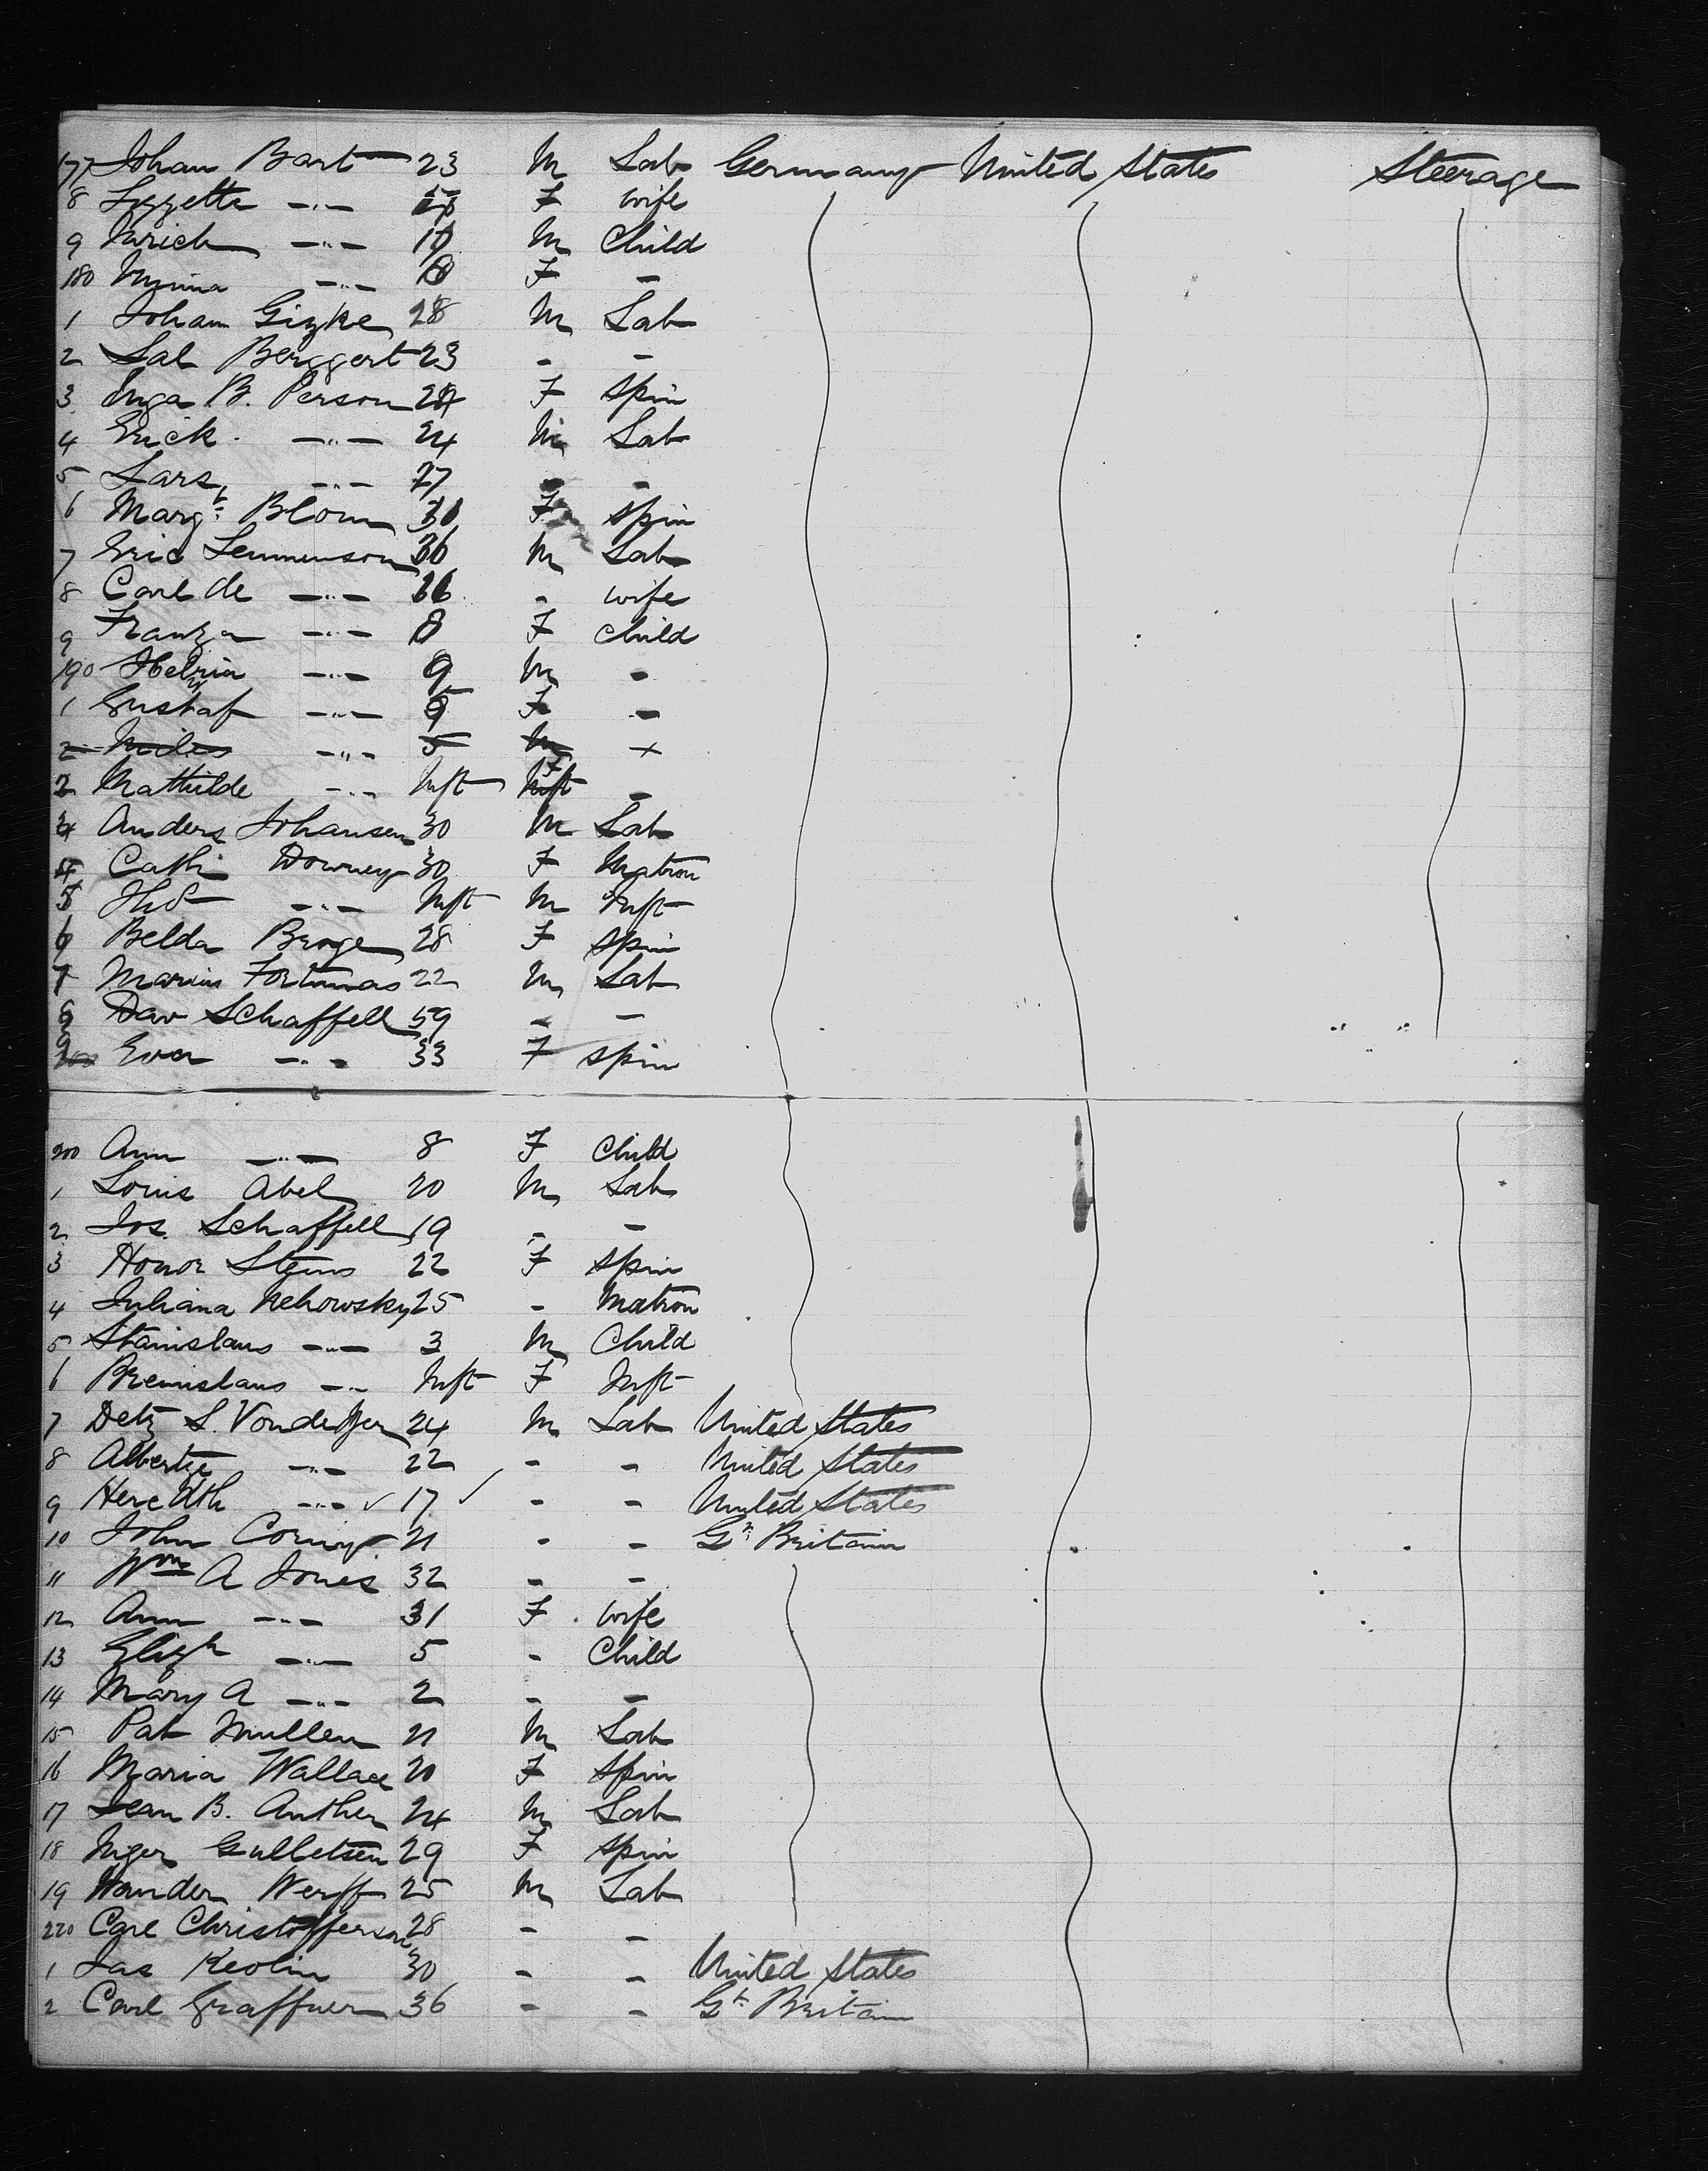 177 Johan Bart 23 M Lab Germany United States Steerage
8 Lizzette —"— F wife
9 —"— M Child
180 Minna —"— 8 F -
1 Johan Gizke 28 M Lab
2 Sal Berggert 23 - -
3 Inga B. Person F Spin
4 Erick —"— 24 M Lab
5 Lars —"— 27 - -
6 Marg.t Blom 30 F Spin
7 Eric 36 M Lab
8 Carl de —"— - wife
9 —"— 8 F Child
190 —"— 9 M -
1 Gustaf —"— F -
2 —"— 5 M
2 Mathilde —"— Inft F -
3 Anders Johansen 30 M Lab
4 Cath Downey 30 F Matron
5 —"— Inft M Inft
6 Belda 28 F Spin
7 Marius Fortunas 22 M Lab
8 Dav Schaffell 59 - -
9 Eva —"— 33 F Spin
200 Ann —"— 8 F Child
1 Louis Abel 20 M Lab
2 Jos. Schaffell 19 - -
3 Honor 22 F Spin
4 Juliana Nehowsky 25 - Matron
5 Stanislaus —"— 3 M Child
6 —"— Inft F Inft
7 24 M Lab United States
8 —"— 22 - - United States
9 —"— ✓ 17 ✓ - - United States
10 John 21 - - Gt Britain
11 Wm A Jones 32 - -
12 Ann —"— 31 F wife
13 Elizh —"— 5 - Child
14 Mary A —"— 2 - -
15 Pat Mullen 21 M Lab
16 Maria Wallace 20 F Spin
17 Jean B. Anthen 24 M Lab
18 29 F Spin
19 Wander Werff 25 M Lab
220 Carl Christofferson 28 - -
1 Jas 30 - - United States
2 Carl Graffner 36 - - Gt Britain